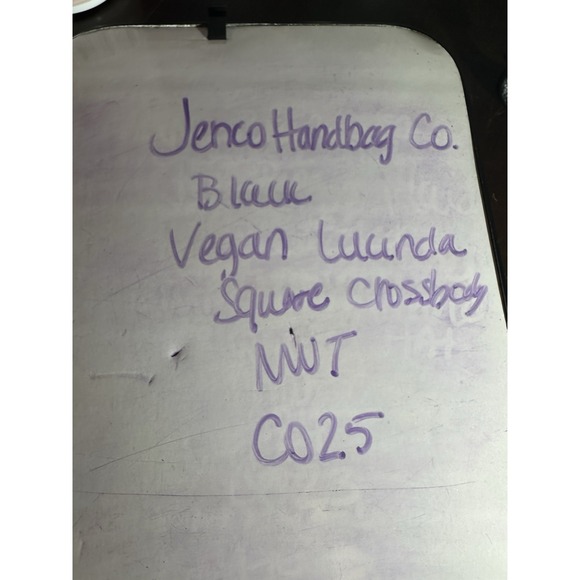 Jenco Handbag Co.
Black
Vegan Lucinda
Square Crossbody
NWT
CO25